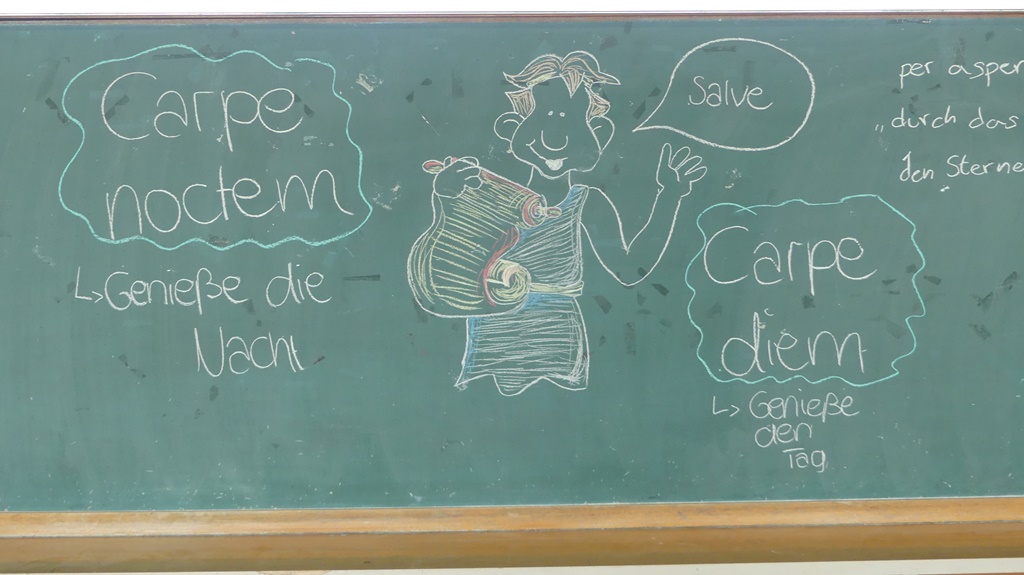 Carpe
noctem
↳ Genieße die
Nacht
Salve
Carpe
diem
↳ Genieße
den
Tag
per asper
„durch das
den Sterne